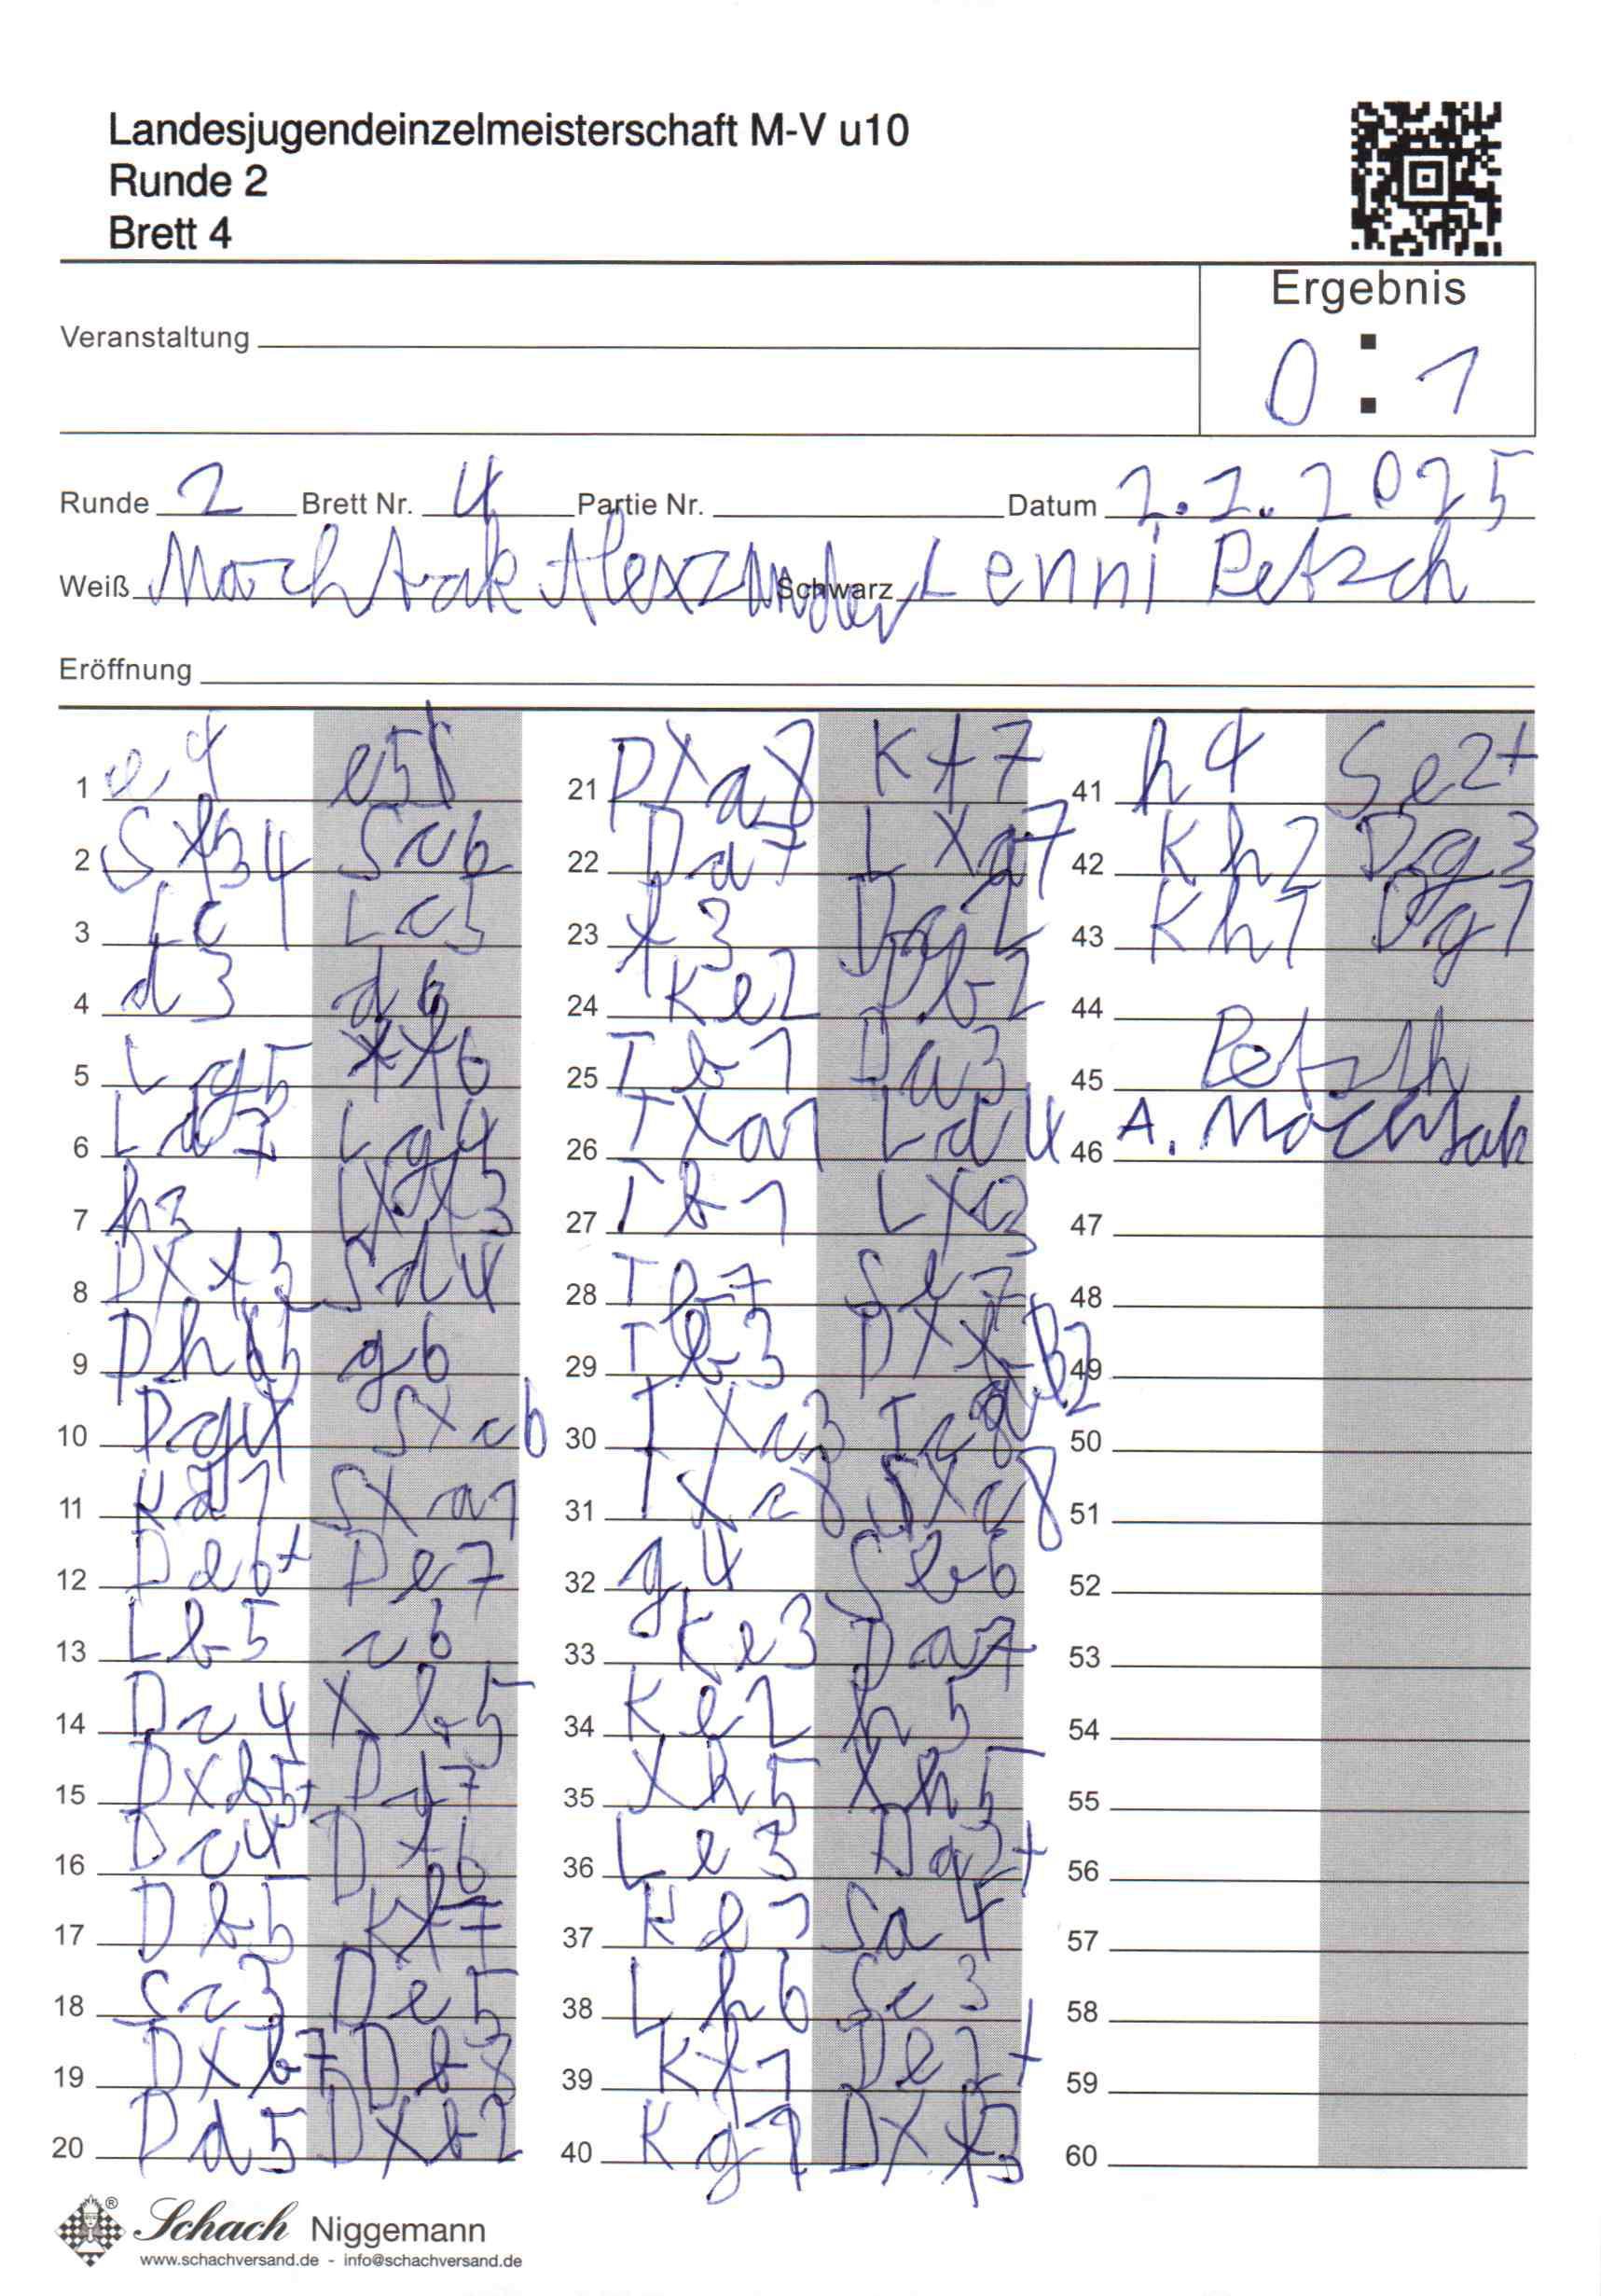 Landesjugendeinzelmeisterschaft M-V u10
Runde 2
Brett 4
Ergebnis
0 : 1
Veranstaltung
Runde 2 Brett Nr. 4 Partie Nr. Datum 2.2.2025
Weiß Mochtak Alexzander Schwarz Lenni Petzsch
Eröffnung
1 e4 e5
2 Sf3 Sc6
3 Lc4 Lc5
4 d3 d6
5 Lg5 f6
6 Ld2 Lg4
7 h3 LXf3
8 DXf3 Sd4
9 Dh5 g6
10 Dg4 SXc6
11 Kd1 SXa1
12 De6+ De7
13 Lb5 c6
14 Dc4 Xb5
15 DXb5+ Dd7
16 Dc4 Df6
17 Db5 Kf7
18 Sc3 De5
19 DXb7 Db8
20 Dd5 DXb2
21 DXa8 Kf7
22 Da7 LXa7
23 f3 Dg2
24 Ke2 Db2
25 Tb1 Da3
26 TXa1 Ld4
27 Tb1 LXc3
28 Tb7 Se7
29 Tb3 DXB2
30 TXc3 Tc8
31 TXc8 SXc8
32 g4 Sb6
33 Ke3 Da7
34 Ke2 h5
35 Xh5 Xh5
36 Le3 Da2+
37 Ke1 Sa4
38 Lh6 Sc3
39 Kf1 De2+
40 Kg1 DXf3
41 h4 Se2+
42 Kh2 Dg3
43 Kh1 Dg1
44
45 Petzsch
46 A. Mochtak
47
48
49
50
51
52
53
54
55
56
57
58
59
60
Schach Niggemann
www.schachversand.de - info@schachversand.de